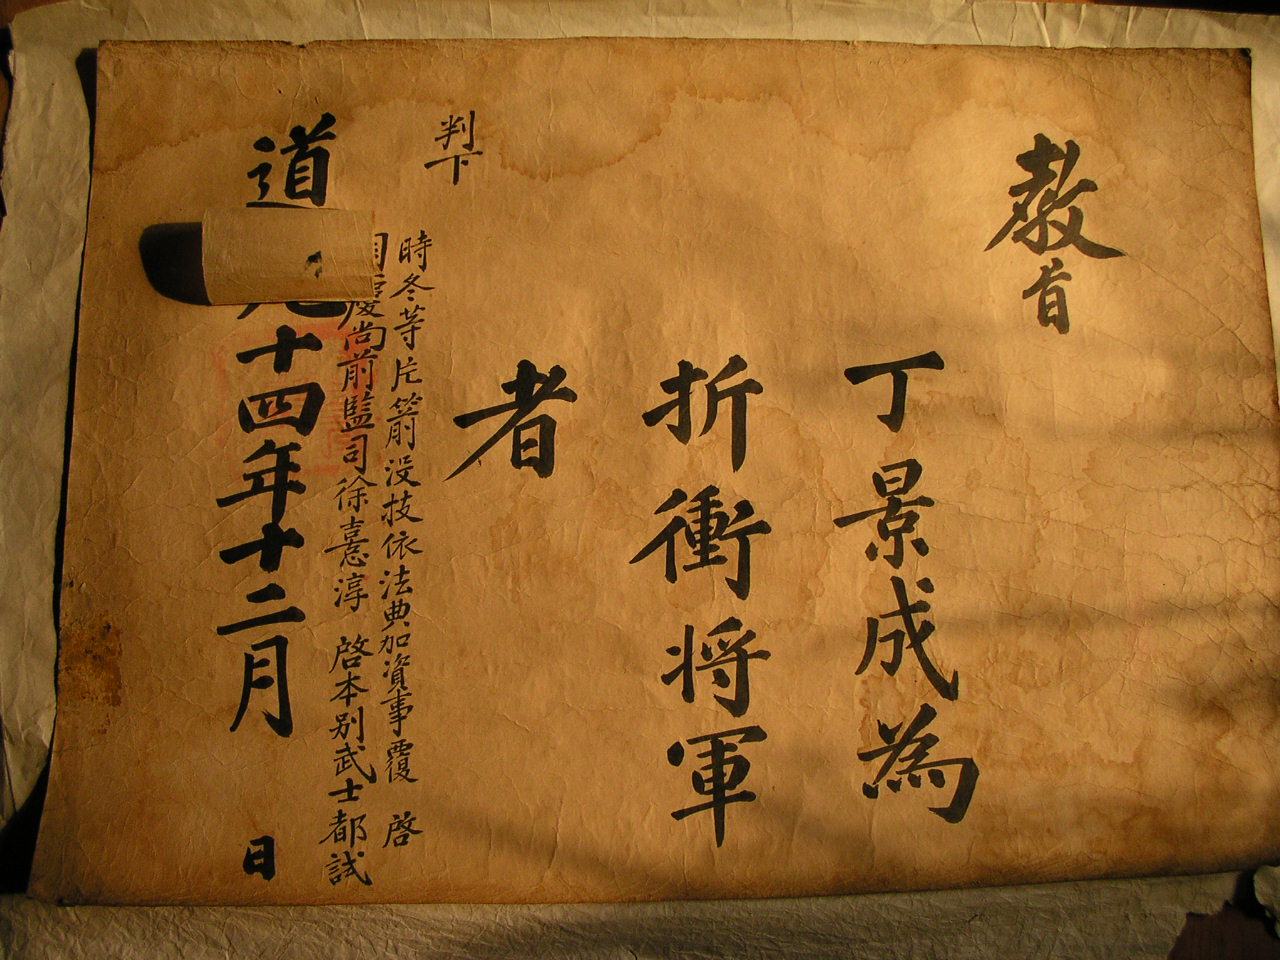 敎旨
丁景成為
折衝将軍
者
道光十四年十二月 日
慶尚前監司徐憙淳 啓本别武士都試
時冬等片箭没技依法典加資事覆 啓
判下